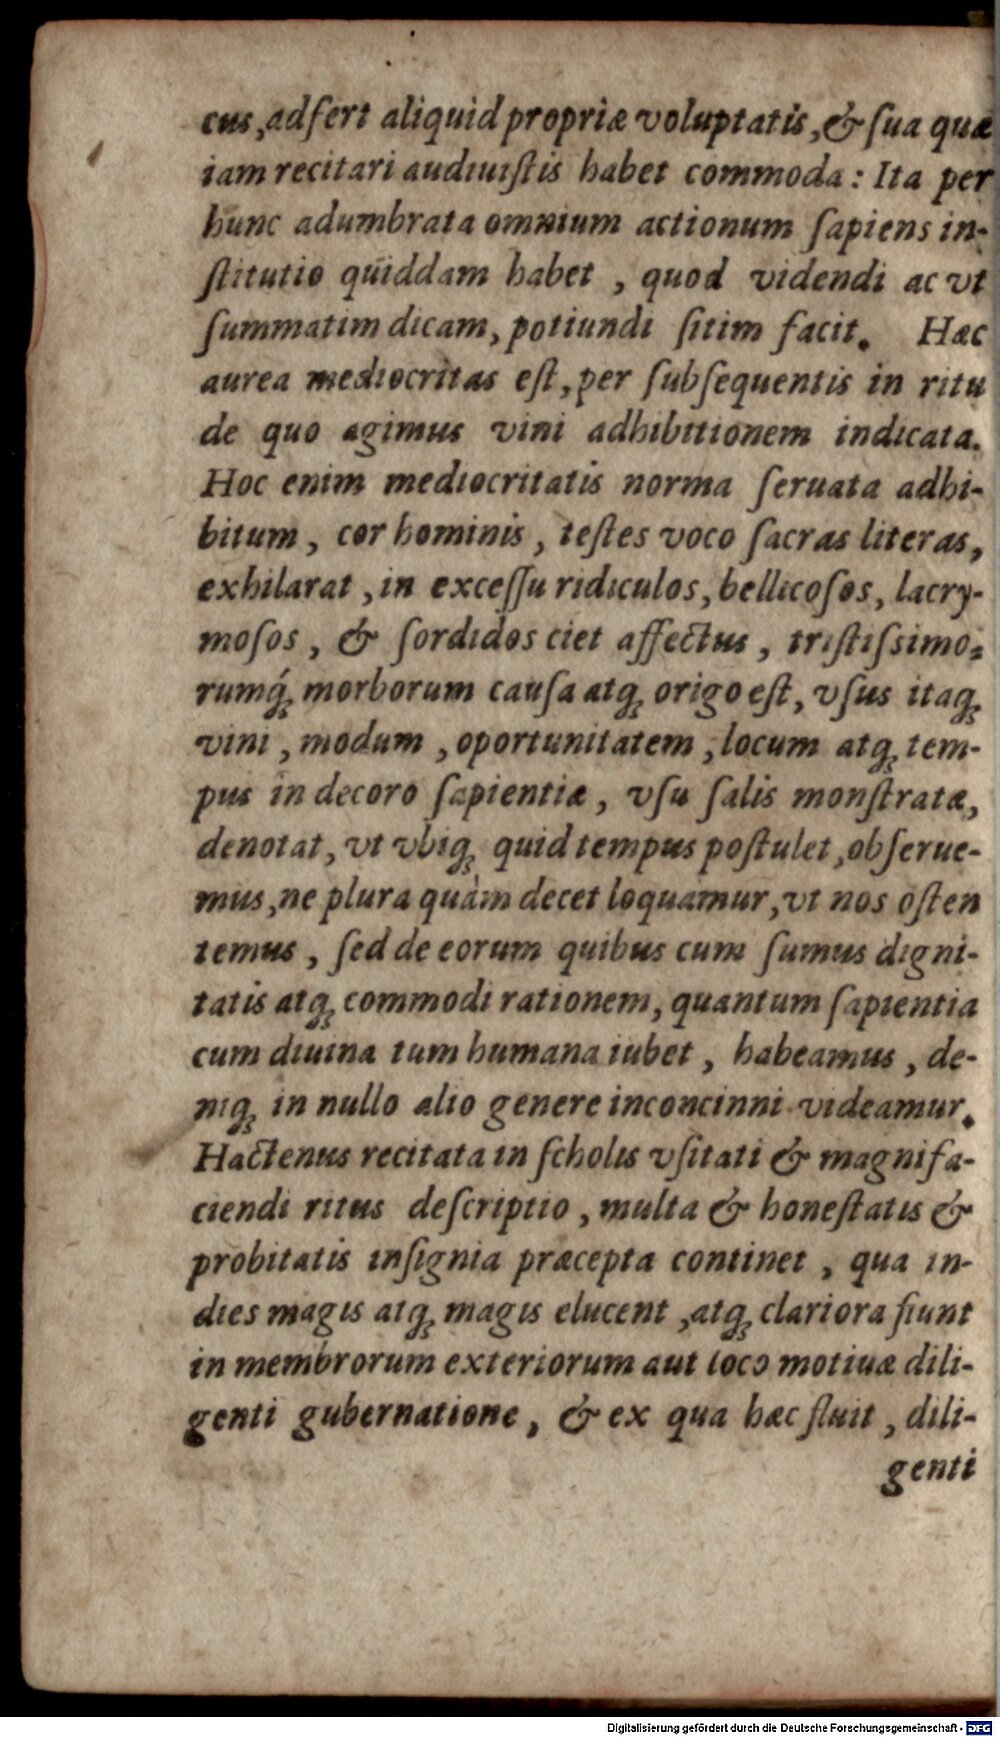 cus, adfert aliquid propriæ voluptatis, & ſua quæ
iam recitari audiuiſtis habet commoda: Ita per
hunc adumbrata omnium actionum ſapiens in-
ſtitutio quiddam habet, quod videndi ac vt
ſummatim dicam, potiundi ſitim facit. Hæc
aurea mediocritas eſt, per ſubſequentis in ritu
de quo agimus vini adhibitionem indicata.
Hoc enim mediocritatis norma ſeruata adhi-
bitum, cor hominis, teſtes voco ſacras literas,
exhilarat, in exceſſu ridiculos, bellicoſos, lacry-
moſos, & ſordidos ciet affectus, triſtiſsimo-
rumq́; morborum cauſa atq; origo eſt, vſus itaq;
vini, modum, oportunitatem, locum atq; tem-
pus in decoro ſapientiæ, vſu ſalis monſtratæ,
denotat, vt vbiq; quid tempus poſtulet, obſerue-
mus, ne plura quàm decet loquamur, vt nos oſten
temus, ſed de eorum quibus cum ſumus digni-
tatis atq; commodi rationem, quantum ſapientia
cum diuina tum humana iubet, habeamus, de-
niq; in nullo alio genere inconcinni videamur.
Hactenus recitata in ſcholis vſitati & magnifa-
ciendi ritus deſcriptio, multa & honeſtatis &
probitatis inſignia præcepta continet, qua in-
dies magis atq; magis elucent, atq; clariora fiunt
in membrorum exteriorum aut loco motiuæ dili-
genti gubernatione, & ex qua hæc fluit, dili-
genti
Digitalisierung gefördert durch die Deutsche Forschungsgemeinschaft - DFG